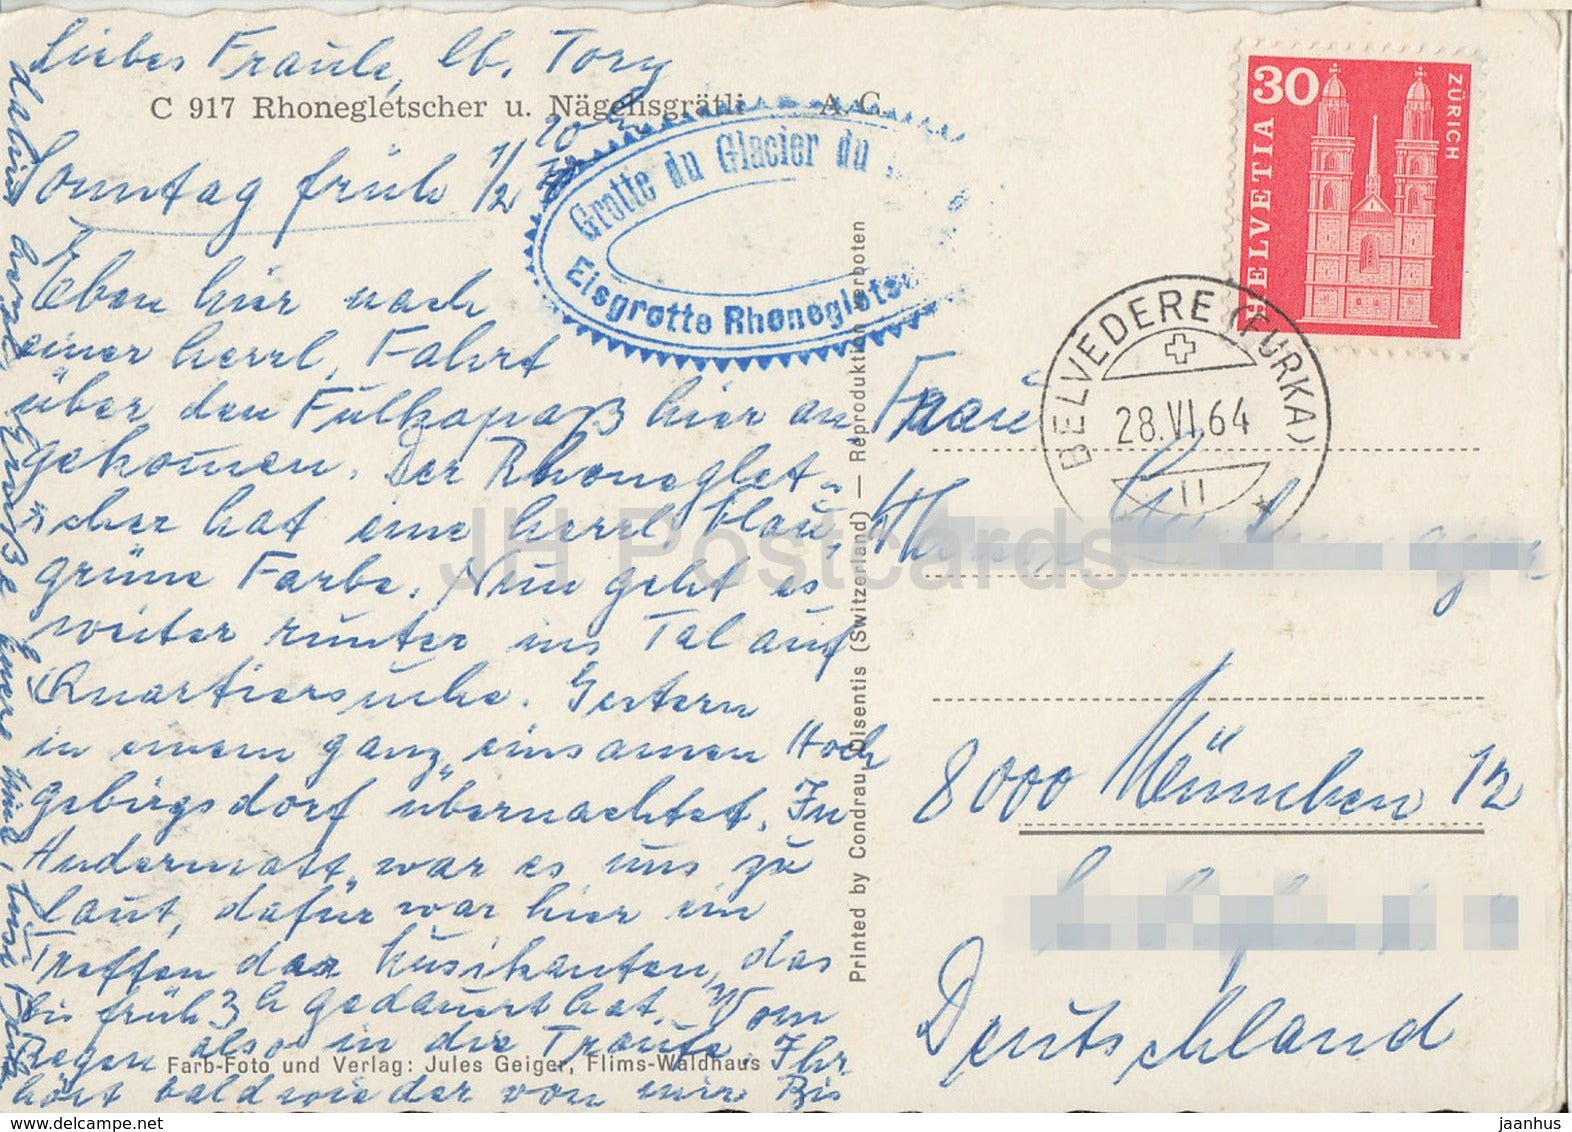 Liebes Fraule, lb. Tory
C 917 Rhonegletscher u. Nägelisgrätli A. G.
Sonntag früh 1/2 10 h
Eben hier nach
einer herrl. Fahrt
über den Fulkapaß hier an
gekomen. Der Rhoneglet-
scher hat eine herrl. blau,
grüne Farbe. Nun geht es
weiter runter ins Tal auf
Quartiersuche. Gestern
in einem ganz einsamen Hoch
gebirgsdorf übernachtet. In
Andermatt war es uns zu
laut, dafür war hier ein
Treffen der Musikanten, das
bis früh 3 h gedauert hat. Vom
Regen also in die Traufe. Ihr
hört bald wieder von mir. Bis
Farb-Foto und Verlag: Jules Geiger, Flims-Waldhaus
dahin herzl. Grüße
Grotte du Glacier du
Eisgrotte Rhonegletsc
Printed by Condrau, Disentis (Switzerland) — Reproduktion verboten
HELVETIA
30
ZÜRICH
BELVEDERE (FURKA)
28.VI.64
11
Frau
8000 München 12
Deutschland
JH Postcards
hippostcard.com
jaanhus